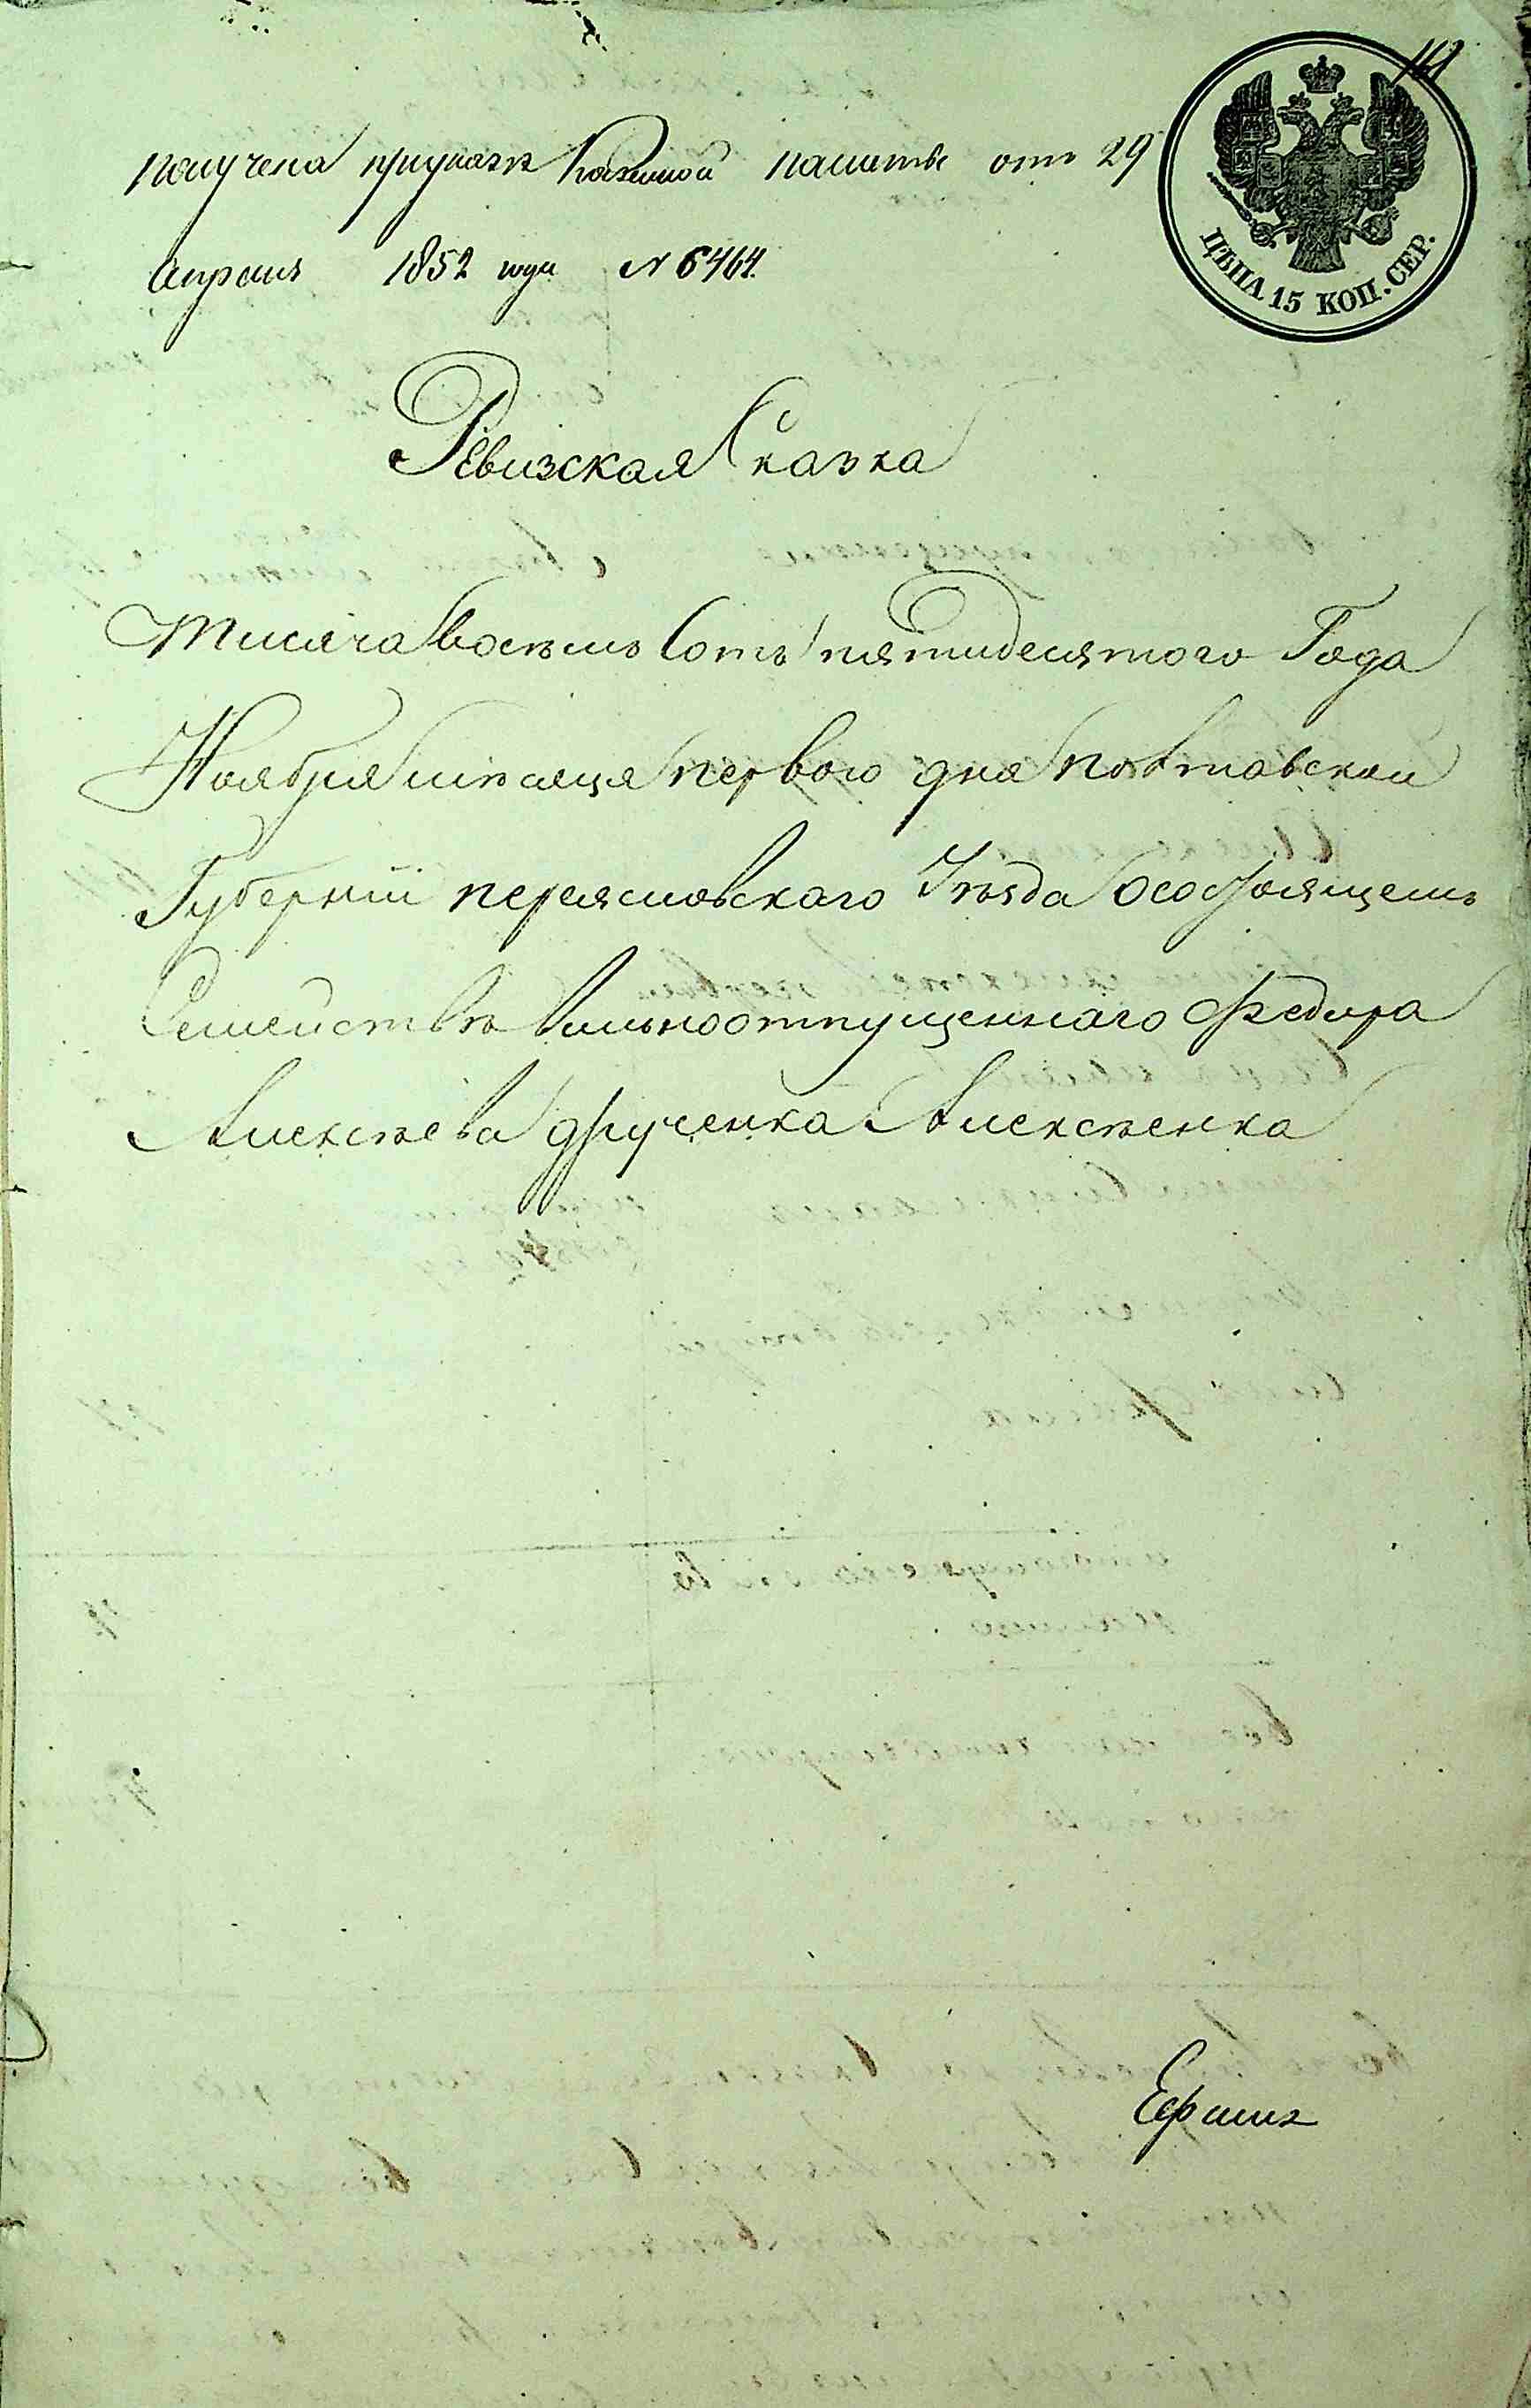 161
получена приуказе Казенной палаты отъ 29
Апреля 1852 года N 6464.
ЦѢНА 15 КОП. СЕР.
Ревизская Сказка
Тисяча восемь Сотъ пятидесятого Года
Ноября месяца первого дня полтавской
Губерніи переясловского Уезда Осостоящемъ
Семействе вольноотпущеннаго Федора
Алексеева друченка Алексеенка